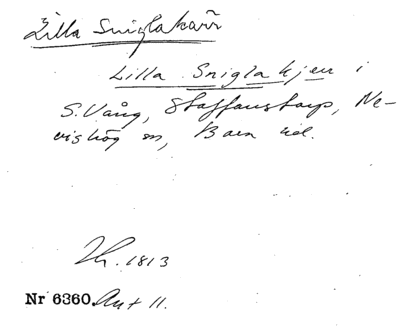 Lilla Sniglakärr
Lilla Sniglakjerr i
S. Vång, Staffanstorp, Ne-
vishög sn, Bara hd.
1813
Nr 6360. Akt 11.